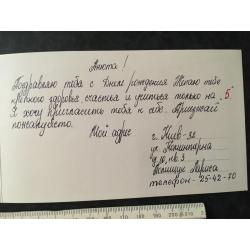 Анюта!
Поздравляю тебя с Днем рождения Желаю тебе
крепкого здоровья, счастья и учиться только на „5.
Я хочу пригласить тебя к себе. Приезжай
пожалуйста.
Мой адрес
г. Киев-32
ул.
д. 10, кв. 3
Лариса
телефон - 25-42-70